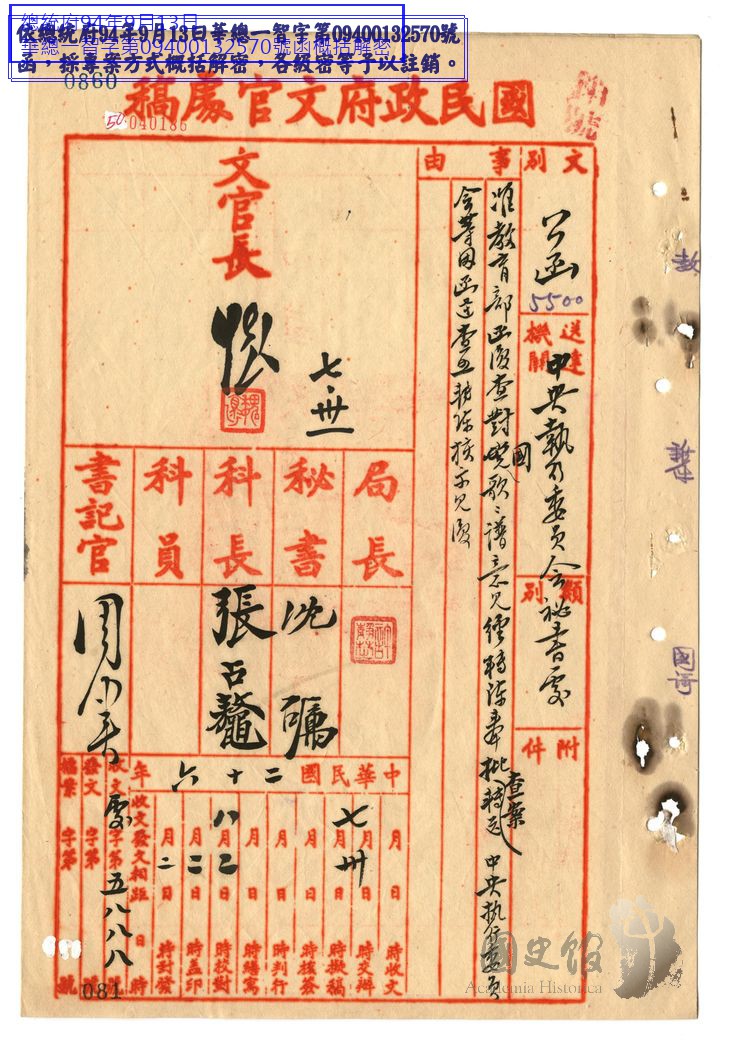 總統府94年9月13日
華總一智字第09400132570號函概括解密
依總統府94年9月13日華總一智字第09400132570號
函，採專案方式概括解密，各級密等予以註銷。
0860
50.040186
國民政府文官處稿
文別
公函
5500
送達機關
中央執行委員會祕書處
類別
附件
事由
准教育部函復查對國歌歌譜意見經轉陳奉批查案轉送中央執行委員
會等因函達查照轉陳核示見復
文官長
七、卅一
局長
秘書
科長
科員
書記官
沈
張占鰲
中華民國二十六年
七月卅日
月日時收文
月日時交辦
月日時擬稿
月日時核簽
月日時判行
月日時繕寫
八月二日時校對
月二日時蓋印
月二日時封發
收文發文相距日時
收文處字第五八八八號
發文字第號
檔案字第號
081
國史館
Academia Historica
國